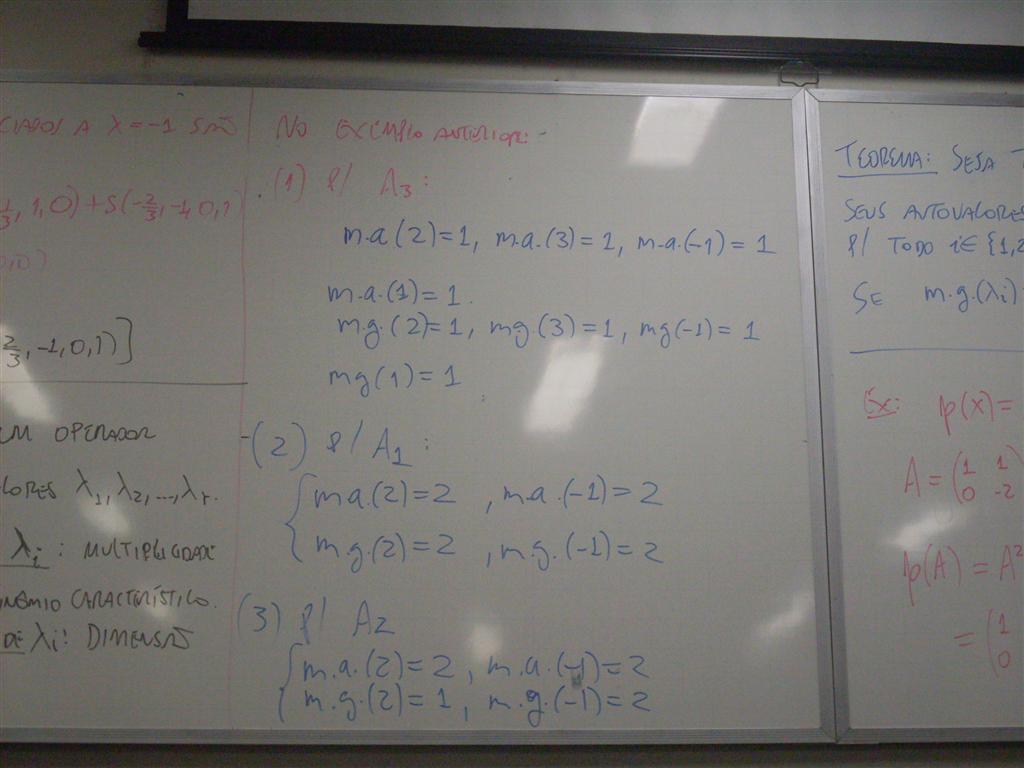 A λ = -1 SÃO
1/3, 1, 0) + S(-2/3, -1, 0, 1)
0,0)
2/3, -1, 0, 1)]
UM OPERADOR
λ₁, λ₂, ..., λr.
λi : MULTIPLICIDADE
CARACTERÍSTICO.
DE λi: DIMENSÃO
NO EXEMPLO ANTERIOR:
(1) P/ A₃:
m.a(2)=1, m.a.(3)=1, m.a(-1)=1
m.a.(1)=1.
m.g.(2)=1, mg.(3)=1, mg(-1)=1
mg(1)=1
(2) P/ A₁:
m.a.(2)=2 , m.a.(-1)=2
m.g.(2)=2 , m.g.(-1)=2
(3) P/ A₂
m.a.(2)=2, m.a.(-1)=2
m.g.(2)=1, m.g.(-1)=2
TEOREMA: SEJA T
SEUS AUTOVALORES
P/ TODO i∈{1,2
SE m.g.(λi)=
Ex: p(x)=
A = (1 1
0 -2
p(A) = A²
= (1
0